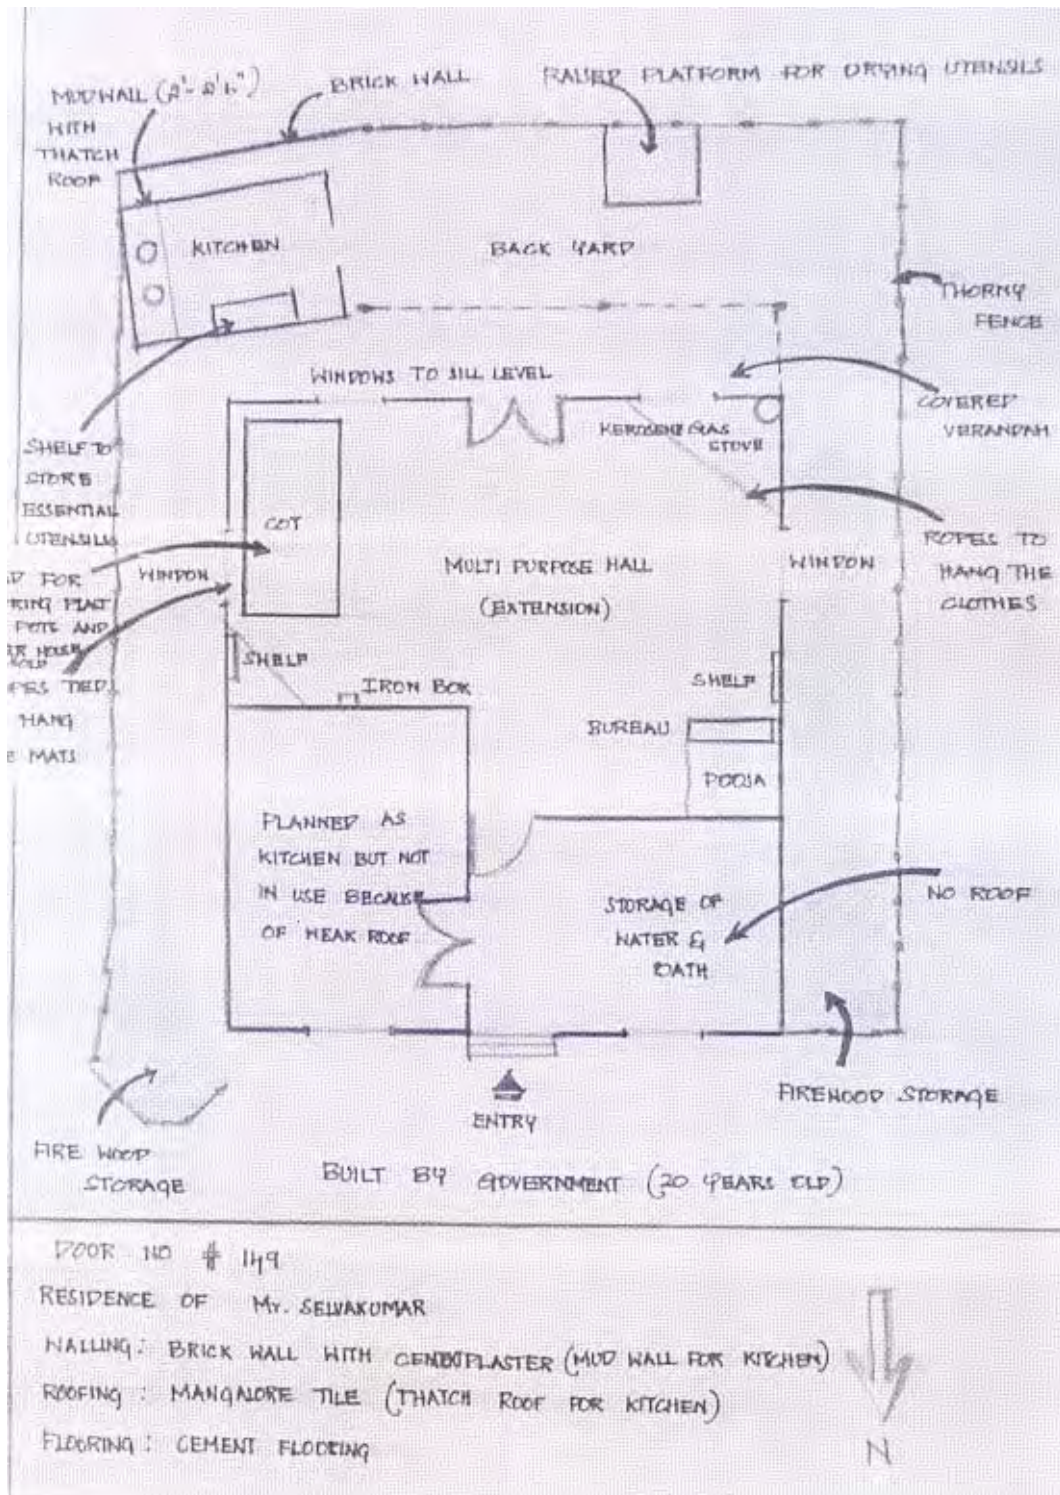 MUD WALL (2'- 2'6")
WITH
THATCH
ROOF
BRICK WALL
RAISED PLATFORM FOR DRYING UTENSILS
KITCHEN
BACK YARD
THORNY
FENCE
WINDOWS TO SILL LEVEL
COVERED
VERANDAH
KEROSENE GAS
STOVE
SHELF TO
STORE
ESSENTIAL
UTENSILS
COT
ROPES TO
HANG THE
CLOTHES
WINDOW
MULTI PURPOSE HALL
(EXTENSION)
WINDOW
FOR
POTS AND
TIED
HANG
MATS
SHELF
IRON BOX
SHELF
BUREAU
POOJA
PLANNED AS
KITCHEN BUT NOT
IN USE BECAUSE
OF WEAK ROOF
STORAGE OF
WATER &
BATH
NO ROOF
FIREWOOD STORAGE
ENTRY
FIRE WOOD
STORAGE
BUILT BY GOVERNMENT (20 YEARS OLD)
DOOR NO # 149
RESIDENCE OF Mr. SELVAKUMAR
WALLING: BRICK WALL WITH PLASTER (MUD WALL FOR KITCHEN)
ROOFING : MANGALORE TILE (THATCH ROOF FOR KITCHEN)
FLOORING : CEMENT FLOORING
N